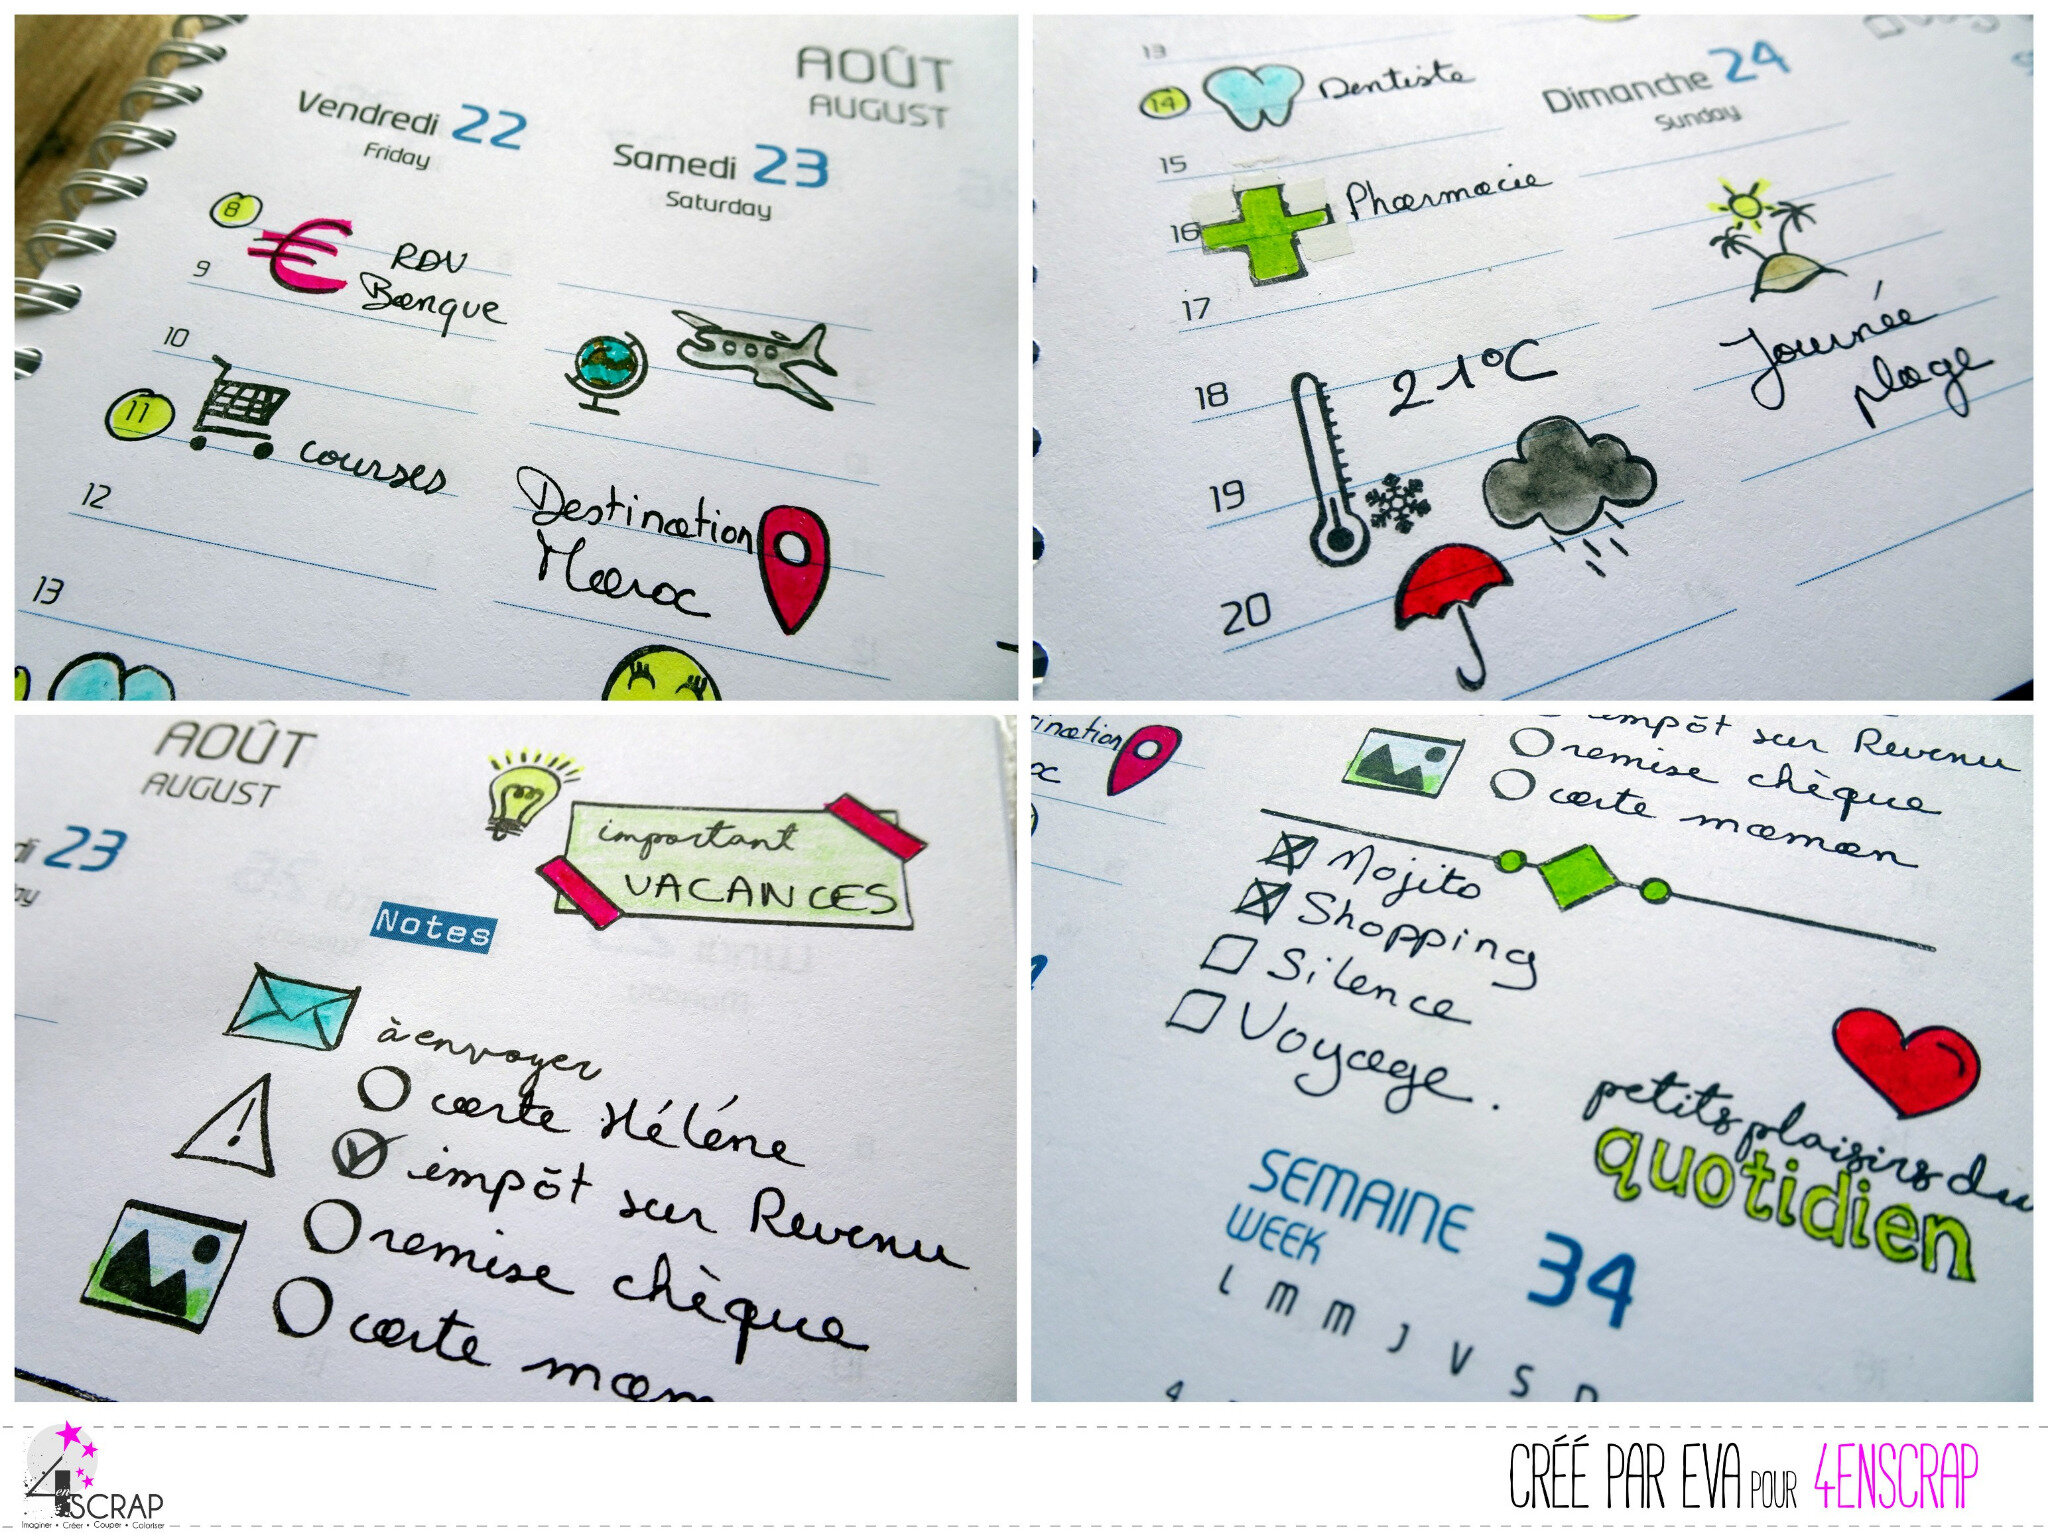 AOÛT
AUGUST
Vendredi 22
Friday
Samedi 23
Saturday
8
RDV
Banque
9
10
11
courses
12
13
Destination
Maroc
13
14
Dentiste
Dimanche 24
Sunday
15
Pharmacie
16
17
18
21°C
19
20
Journée
plage
AOÛT
AUGUST
di 23
ay
important
VACANCES
Notes
à envoyer
carte Hélène
impôt sur Revenu
remise chèque
carte mam
ination
oc
impôt sur Revenu
remise chèque
carte maman
Mojito
Shopping
Silence
Voyage.
petits plaisirs du
quotidien
SEMAINE 34
WEEK
L M M J V S D
4
4 en SCRAP
Imaginer • Créer • Couper • Coloriser
CRÉÉ PAR EVA POUR 4ENSCRAP